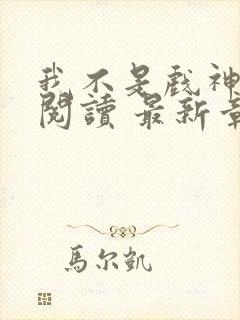 我不是戲神
閱讀 最新章
馬尔凱